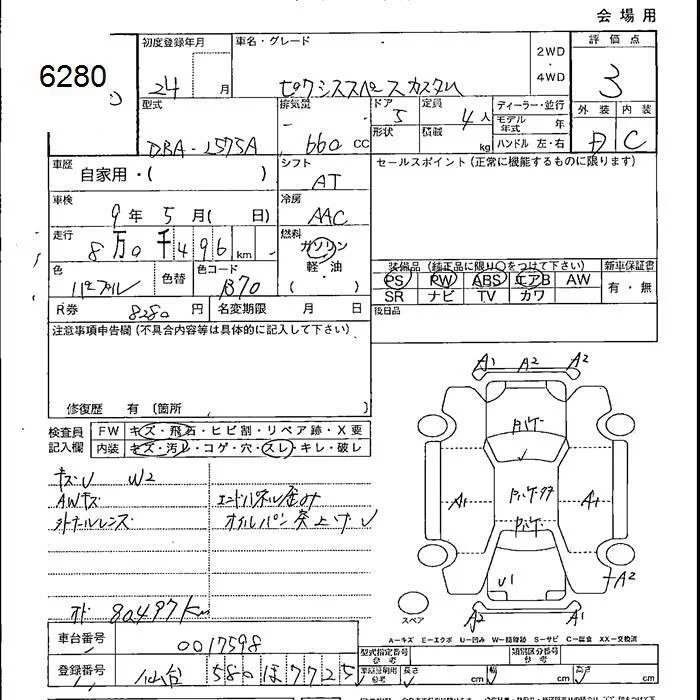 会場用
6280
初度登録年月
24 月
車名・グレード
ピクシススペースカスタム
2WD
・
4WD
評価点
3
型式
DBA-L575A
排気量
660 cc
ドア
5
定員
4 人
形状
積載
kg
ディーラー・並行
モデル年式 年
ハンドル 左・右
外装 内装
D C
車歴
自家用・( )
シフト
AT
セールスポイント (正常に機能するものに限ります)
車検
9 年 5 月( 日)
冷房
AAC
走行
8 万 0 千 4 9 6 km
燃料
ガソリン
軽・油
( )
色
パープル
色替
色コード
B70
装備品 (純正品に限り○をつけて下さい)
PS PW ABS エアB AW
SR ナビ TV カワ
新車保証書
有・無
R券 8280 円
名変期限 月 日
後日品
注意事項申告欄 (不具合内容等は具体的に記入して下さい)
修復歴 有 (箇所 )
検査員
記入欄
FW キズ・飛石・ヒビ割・リペア跡・X要
内装 キズ・汚レ・コゲ・穴・スレ・キレ・破レ
キズU W2
AWキズ
エンドパネル歪み
オイルパン突上げU
オド 80497Km
A1 A2 A2
A1
A1
U1
A2
A2 A1
スペア
A-キズ E-エクボ U-凹み W-補修跡 S-サビ C-腐食 XX-交換済
車台番号
0017598
型式指定番号
参考
類別区分番号
参考
登録番号
仙台 580 ほ 7725
長さ cm
cm
高さ cm